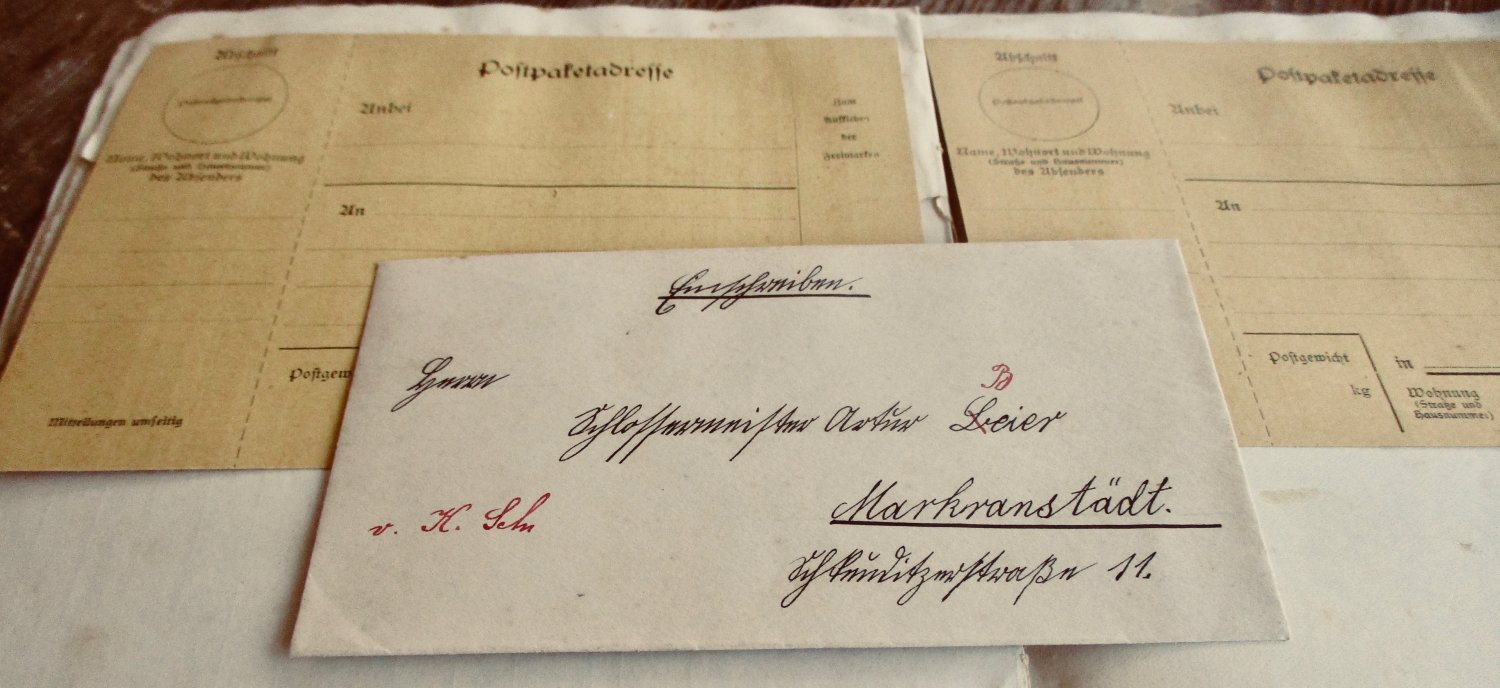 Abschnitt
Postpaketadresse
Anbei
Zum
Aufkleben
der
Freimarken
Name, Wohnort und Wohnung
(Straße und Hausnummer)
des Absenders
An
Postgew
Mitteilungen umseitig
Abschnitt
Postpaketadresse
Anbei
Name, Wohnort und Wohnung
(Straße und Hausnummer)
des Absenders
An
Postgewicht
kg
in
Wohnung
(Straße und
Hausnummer)
Einschreiben.
Herrn
B
Schlossermeister Artur Leier
Markranstädt.
v. K. Sch
Schkeuditzerstraße 11.